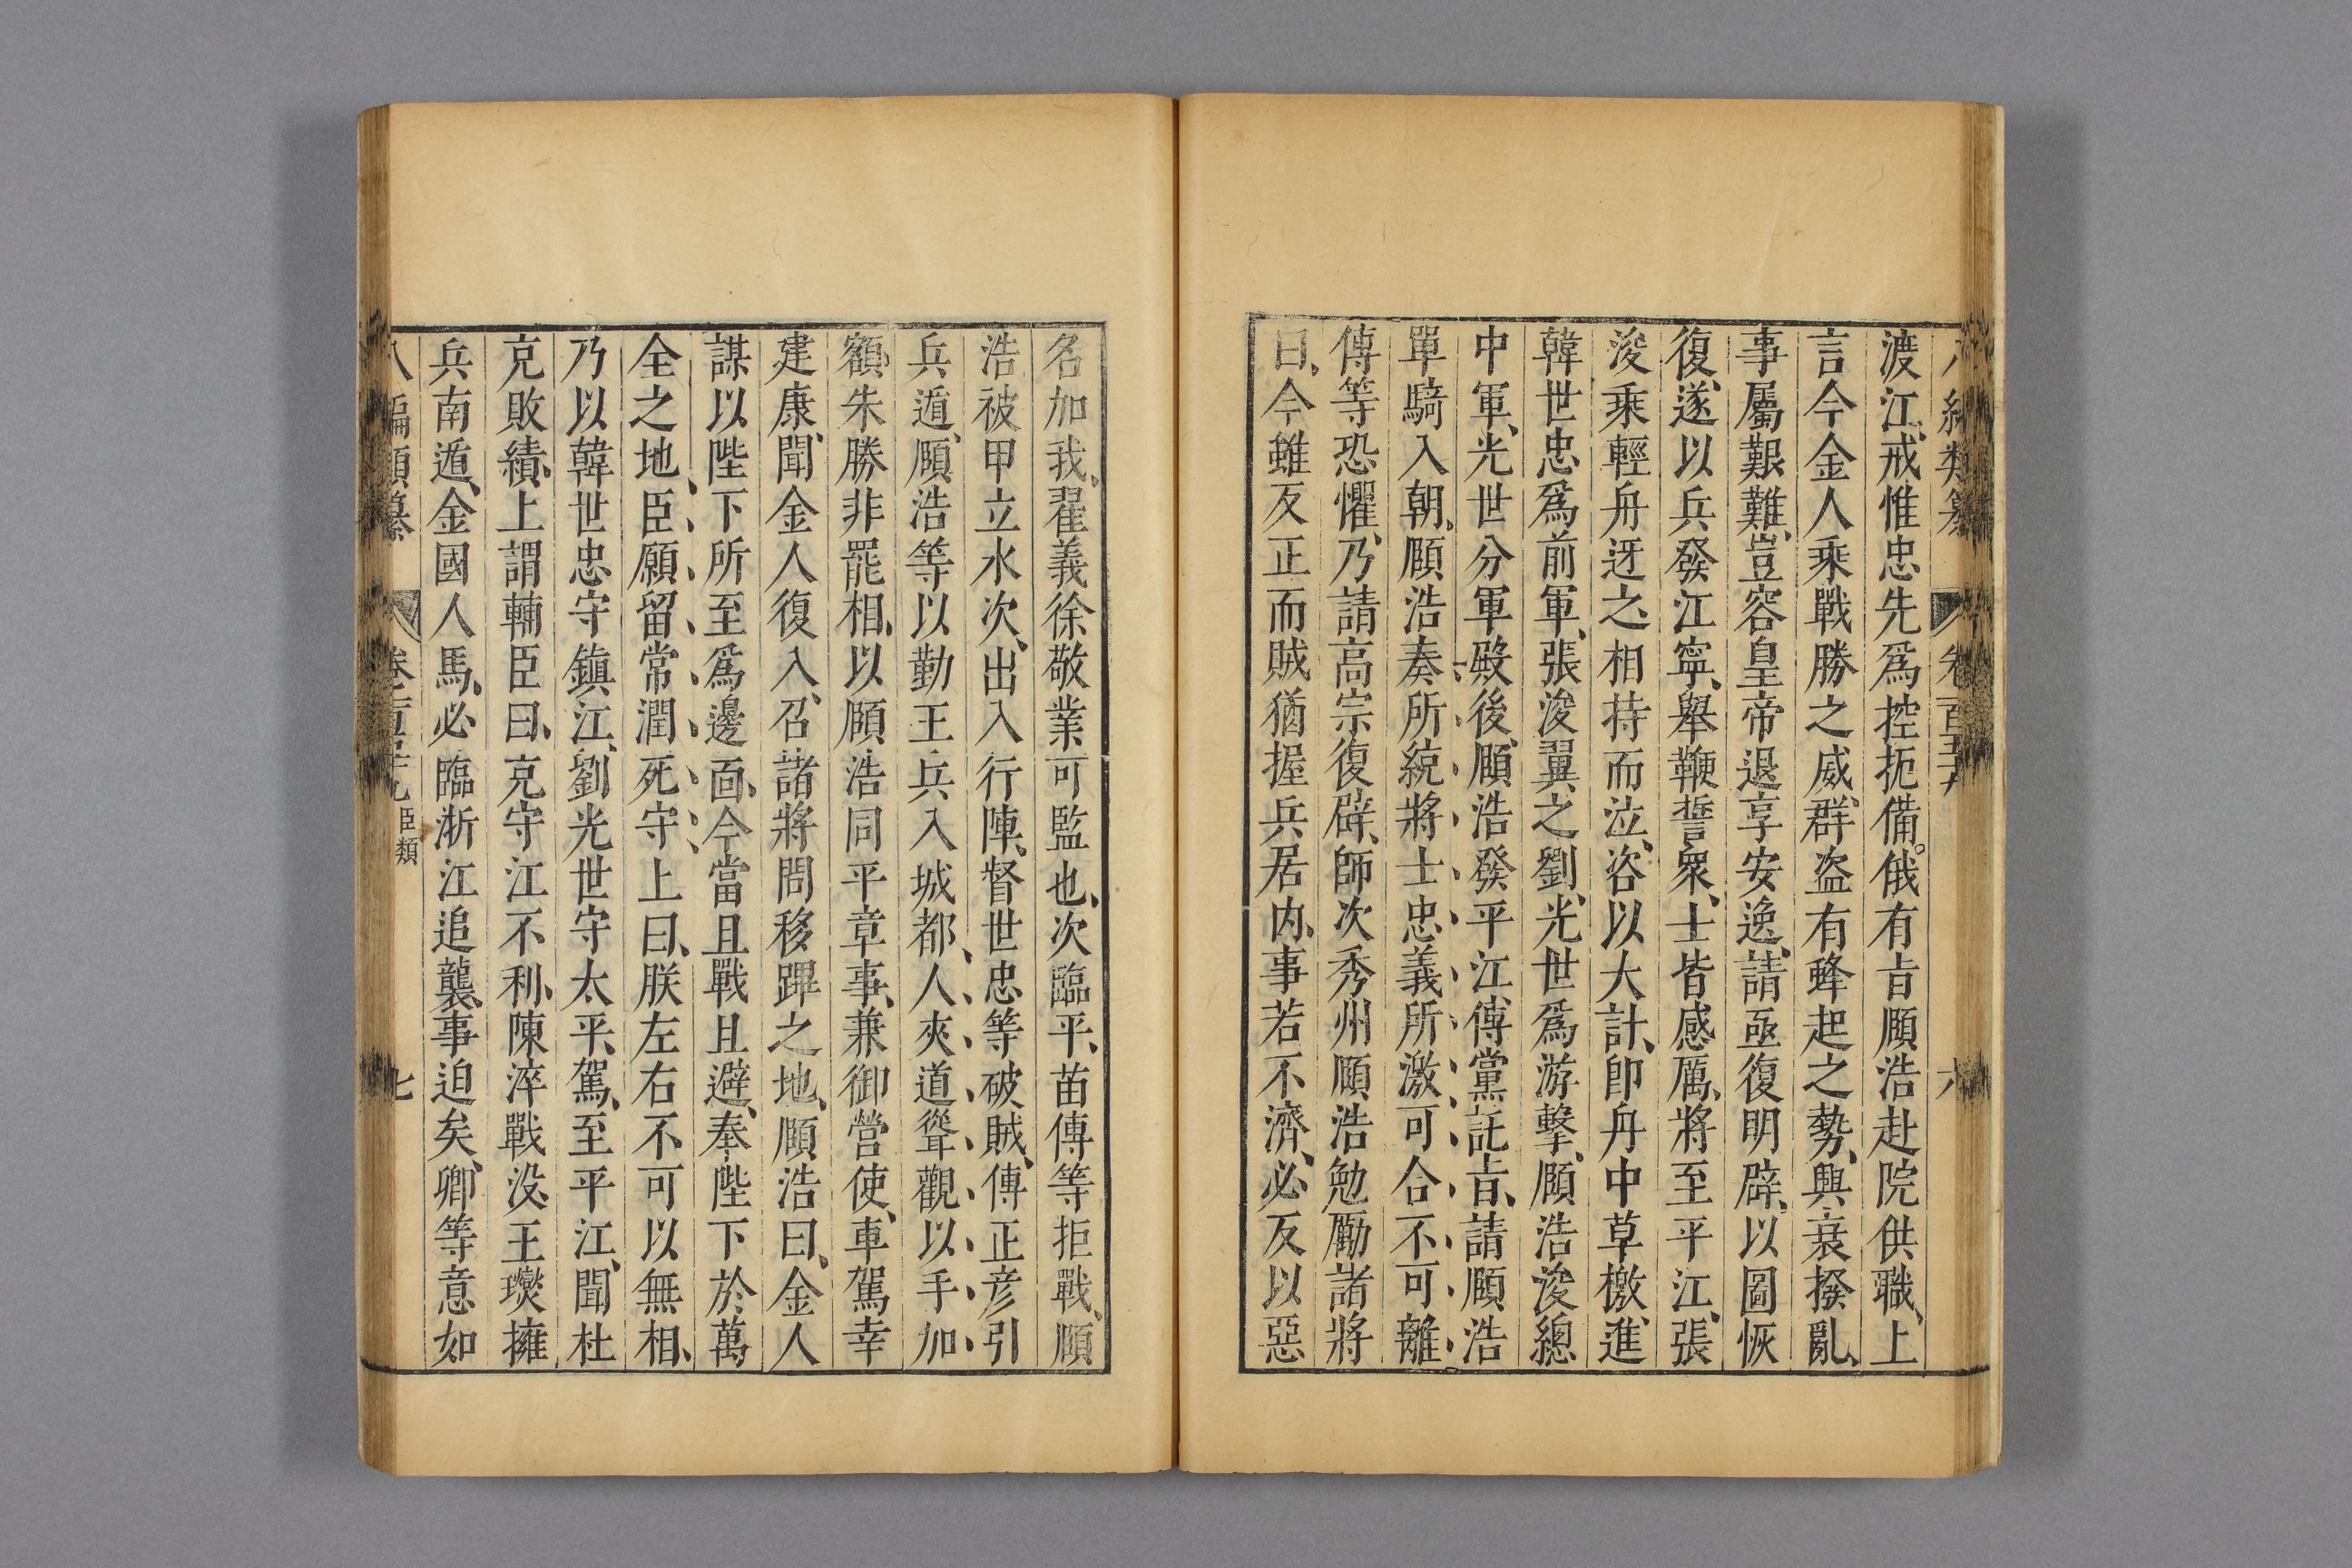 渡江、戒惟忠先爲控扼備。俄有㫖頤浩赴院供職、上
言今金人乘戰勝之威、群盗有蜂起之勢、興衰撥亂、
事屬艱難、豈容皇帝退享安逸、請亟復明辟、以圖恢
復、遂以兵發江寧、舉鞭誓衆、士皆感厲、將至平江、張
浚乘輕舟迓之、相持而泣、咨以大計、卽舟中草檄、進
韓世忠爲前軍、張浚翼之、劉光世爲游擊、頤浩浚總
中軍、光世分軍殿後、頤浩發平江、傅黨託㫖、請頤浩
單騎入朝、頤浩奏所統將士、忠義所激、可合不可離、
傅等恐懼、乃請高宗復辟、師次秀州、頤浩勉勵諸將
曰、今雖反正而賊猶握兵居内、事若不濟、必反以惡
名加我、翟義徐敬業可監也、次臨平、苗傅等拒戰、頤
浩被甲立水次、出入行陣、督世忠等破賊、傅正彦引
兵遁、頤浩等以勤王兵入城都、人夾道聳觀、以手加
額、朱勝非罷相、以頤浩同平章事、兼御營使、車駕幸
建康、聞金人復入、召諸將問移蹕之地、頤浩曰、金人
謀以陛下所至爲邊面、今當且戰且避、奉陛下於萬
全之地、臣願留常潤死守、上曰、朕左右不可以無相、
乃以韓世忠守鎮江、劉光世守太平、駕至平江、聞杜
充敗績、上謂輔臣曰、充守江不利、陳淬戰没、王𤫉擁
兵南遁、金國人馬、必臨浙江追襲、事迫矣、卿等意如
八編類纂 卷一百五十九 臣類 七